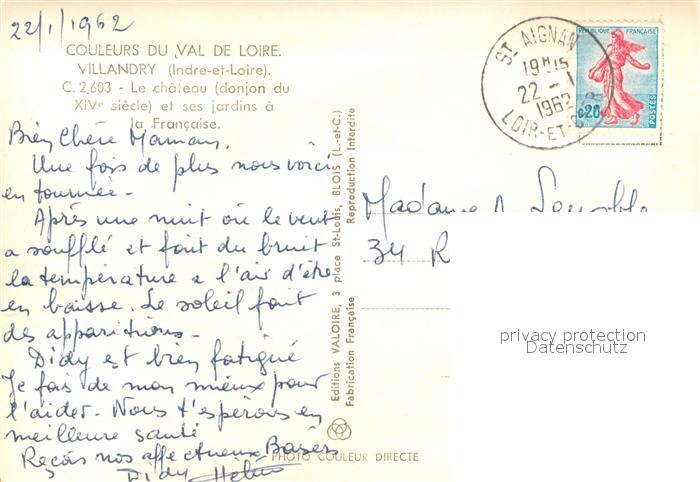 22/1/1962
COULEURS DU VAL DE LOIRE.
VILLANDRY (Indre-et-Loire).
C. 2,603 - Le château (donjon du
XIVe siècle) et ses jardins à
la Française.
Bien Chère Maman,
Une fois de plus nous voici
en tournée -
Après une nuit où le vent
a soufflé et fait du bruit
la température a l'air d'être
en baisse. Le soleil fait
des apparitions -
Didy est bien fatigué
Je fais de mon mieux pour
l'aider - Nous t'espérons en
meilleure santé
Reçois nos affectueux Baisers
Didy
PHOTO COULEUR DIRECTE
Editions VALOIRE, 3 place St-Louis, BLOIS (L.-et-C.)
Fabrication Française Reproduction Interdite
ST AIGNAN
19H15
22 - 1
1962
LOIR-ET-CHER
REPUBLIQUE FRANÇAISE
0,20
POSTES
Madame
34 R
privacy protection
Datenschutz